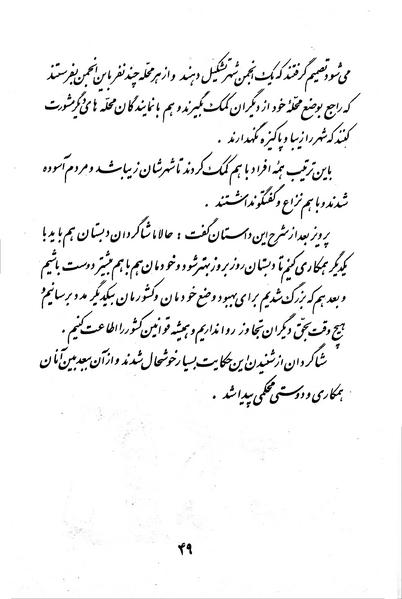 می‌شود تصمیم گرفتند که یک انجمن شهر تشکیل دهند و از هر محله چند نفر باین انجمن بفرستند
که راجع بوضع محلهٔ خود از دیگران کمک بگیرند و هم با نمایندگان محله های دیگر مشورت
کنند که شهر را زیبا و پاکیزه نگهدارند .
باین ترتیب همهٔ افراد با هم کمک کردند تا شهرشان زیبا باشد و مردم آسوده
شدند و با هم نزاع و گفتگو نداشتند .
پرویز بعد از شرح این داستان گفت : حالا ما شاگردان دبستان هم باید با
یکدیگر همکاری کنیم تا دبستان روز بروز بهتر شود و خودمان هم با هم بیشتر دوست باشیم
و بعد هم که بزرگ شدیم برای بهبود وضع خودمان و کشورمان بیکدیگر مدد برسانیم و
هیچ وقت بحق دیگران تجاوز روا نداریم و همیشه قوانین کشور را اطاعت کنیم .
شاگردان از شنیدن این حکایت بسیار خوشحال شدند و از آن ببعد بین آنان
همکاری و دوستی محکمی پیدا شد .
۴۹